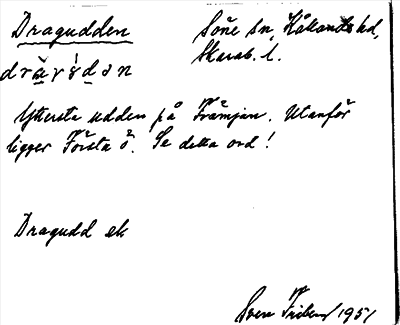 Dragudden Söne sn, Kållands hd,
Skarab. l.
Yttersta udden på Främjan. Utanför
ligger Första ö. Se detta ord!
Dragudd ek
Sven Friberg 1951